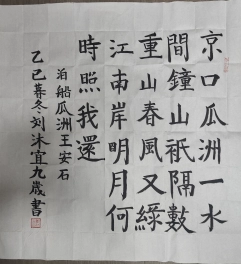 京口瓜洲一水
間鐘山祇隔數
重山春風又綠
江南岸明月何
時照我還
泊船瓜洲王安石
乙巳暮冬刘沐宜九歲書